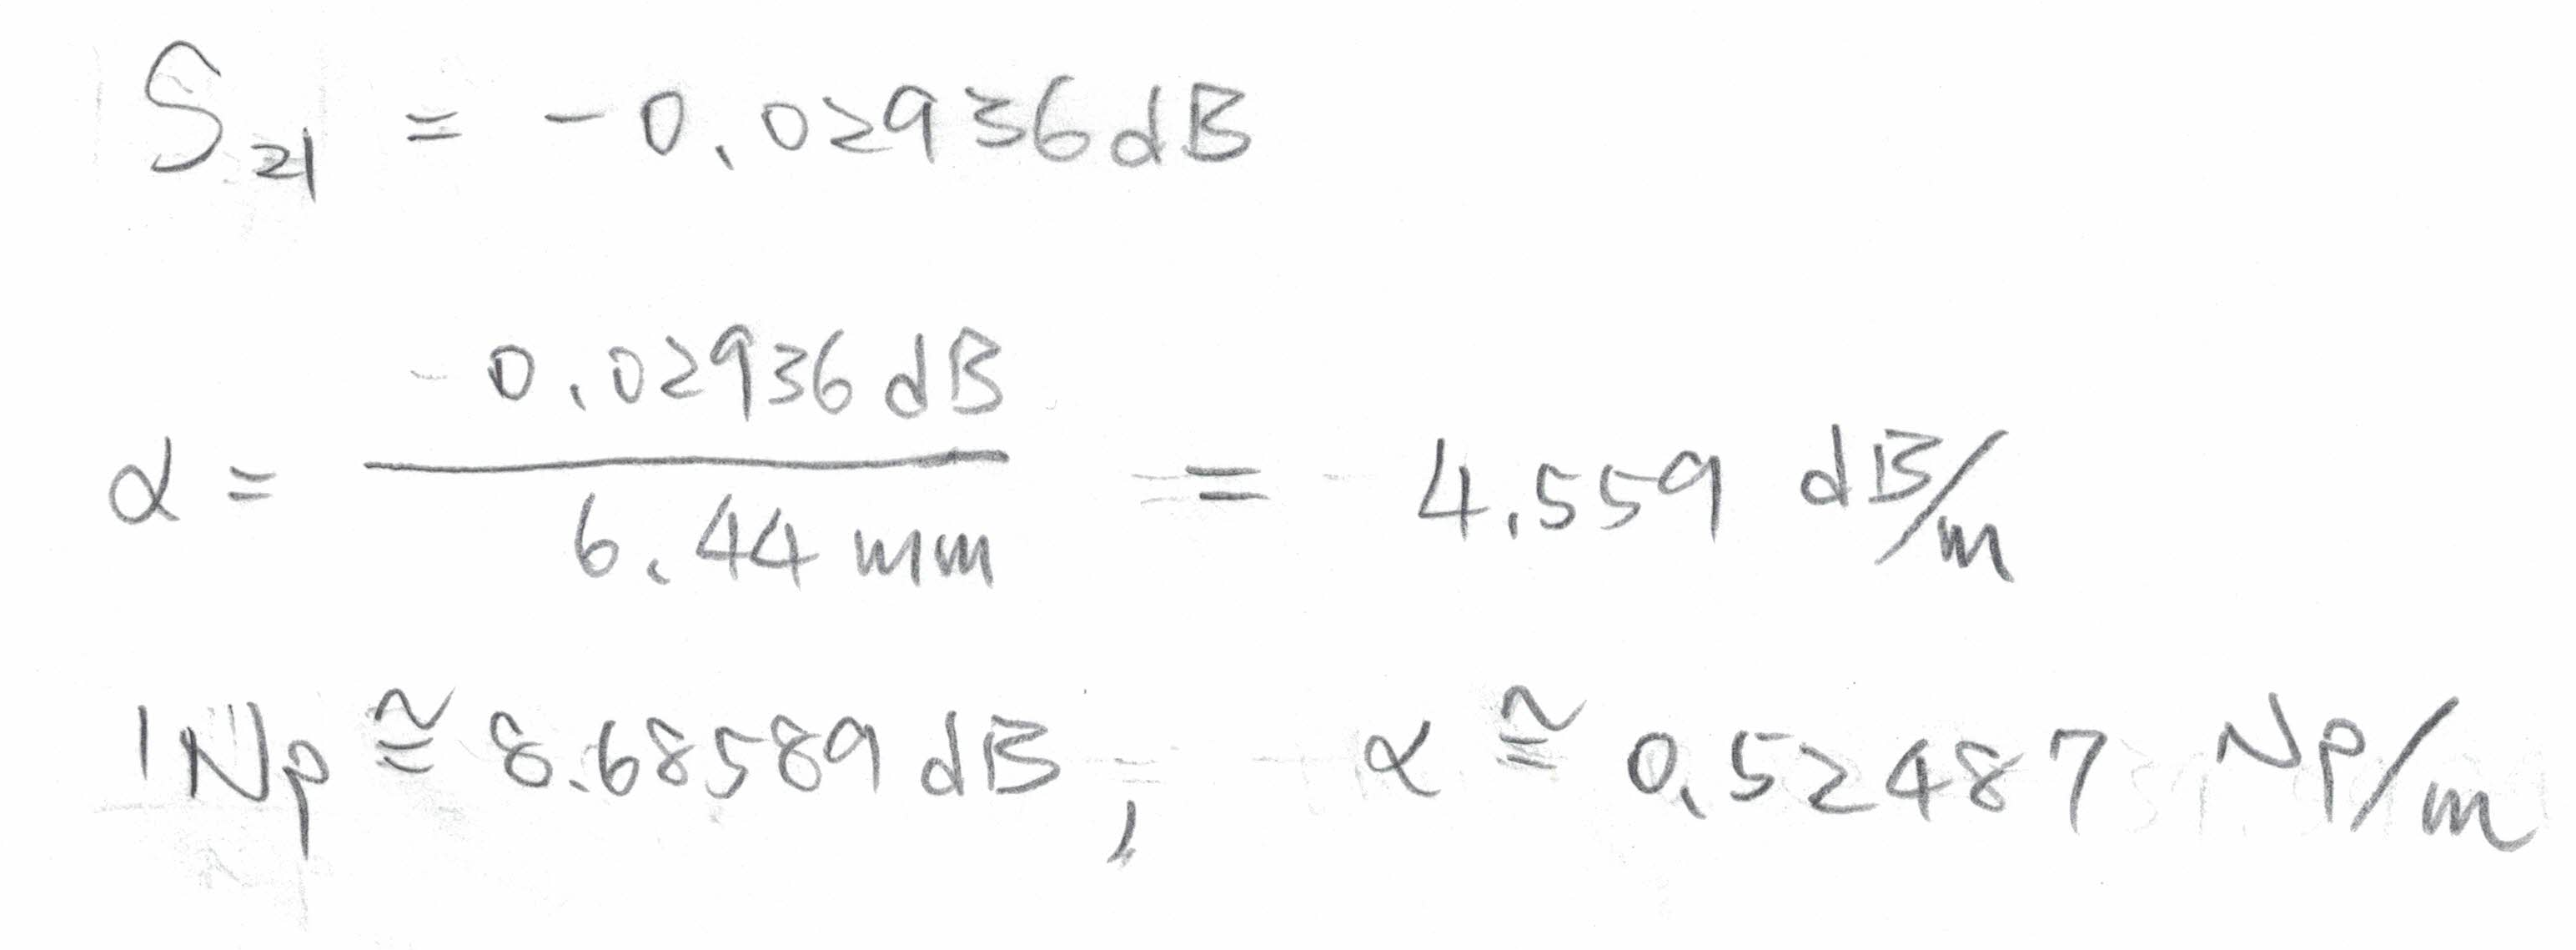 S₂₁ = -0.02936 dB
α = -0.02936 dB / 6.44 mm = 4.559 dB/m
1 Np ≅ 8.68589 dB, α ≅ 0.52487 Np/m